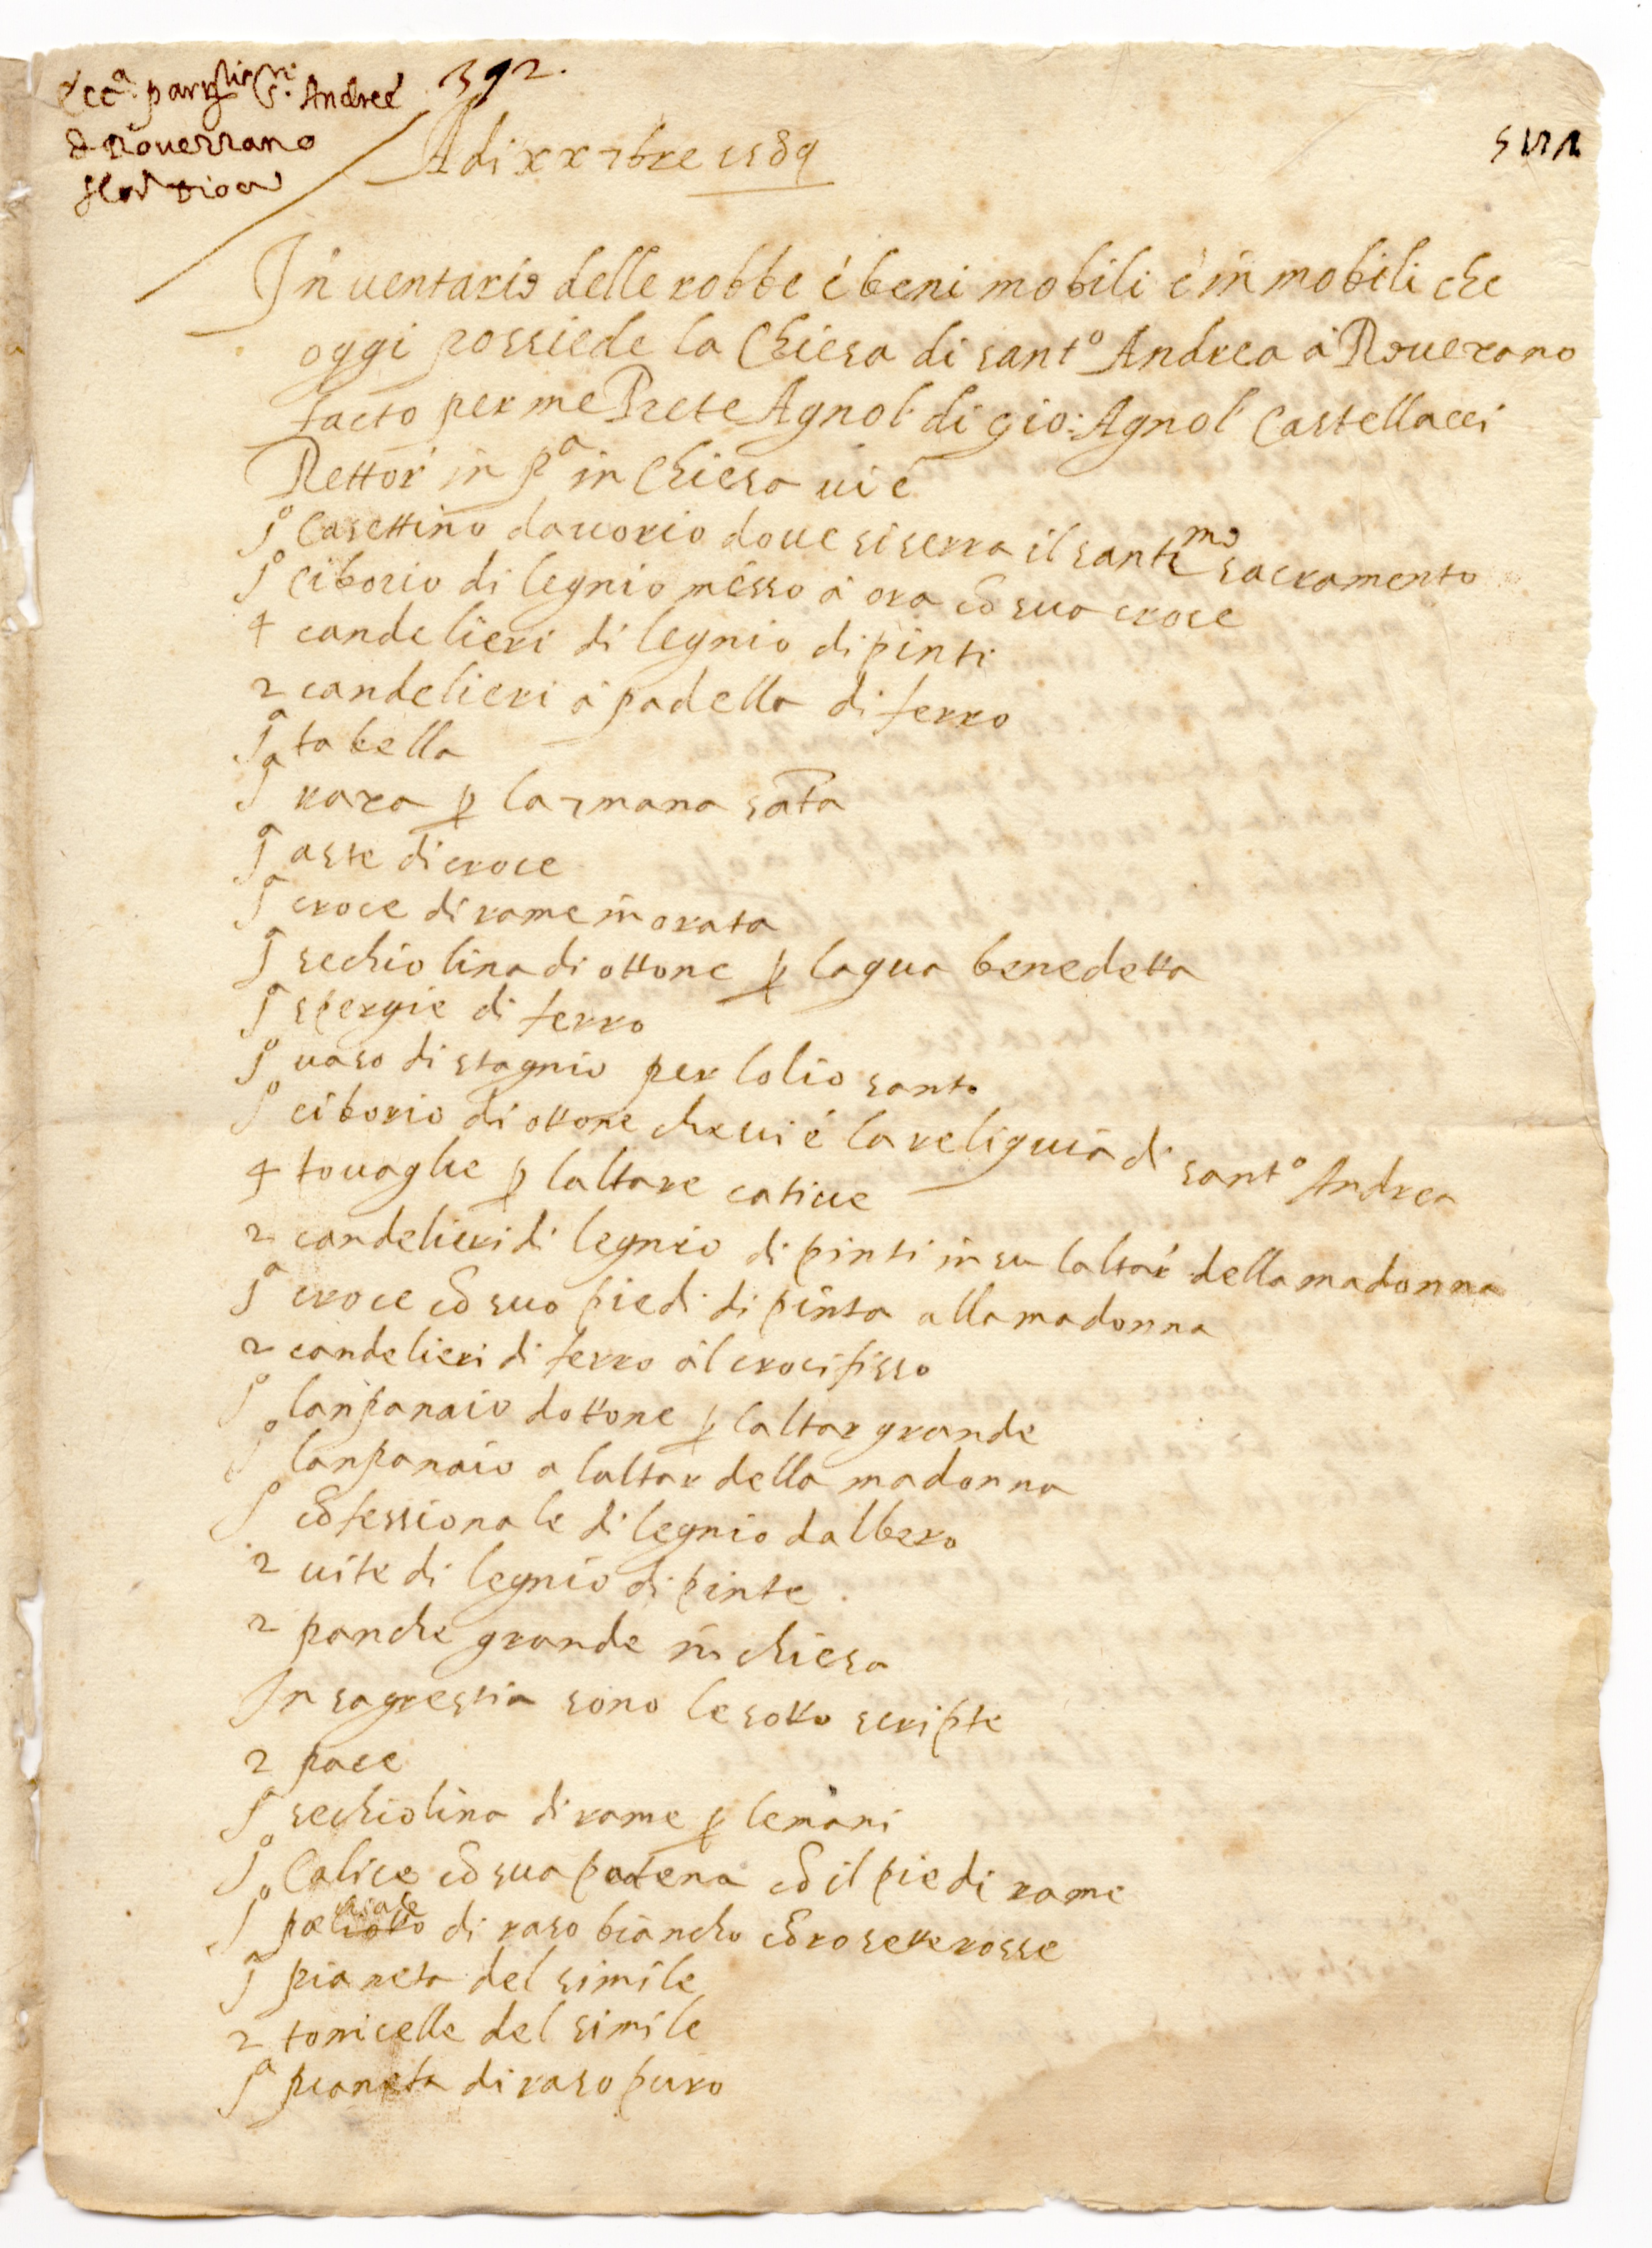 Eccᵃ. parrlis Sⁱ. Andreè
d Rouerrano
flor Dioc
392.
A di xx 7bre 1589
Inuentario delle robbe é beni mobili é in mobili che
oggi possiede la Chiesa di santº Andrea à Rouerano
facto per me Prete Agnol di gio: Agnol Castellacci
Rettor in pª in Chiesa ui é
jº Casettino dauorio doue si serra il santimo sacramento
jº ciborio di legnio messo à oro cō sua croce
4 candelieri di legnio dipinti
2 candelieri à padella di ferro
jª tabella
jª para p la 7mana sāta
jª aste di croce
jª croce di rame in orata
jª sechiolina di ottone p lagua benedetta
jª spergie di ferro
jº uaso di stagnio per lolio santo
jº ciborio di ottone che ui é la reliquia di santº Andrea
4 touaglie p laltare catiue
2 candelieri di legnio dipinti in su laltar della madonna
jª croce cō suo piedi dipinta alla madonna
2 candelieri di ferro àl crocifisso
jº lanpanaio dottone p laltar grande
jº lanpanaio a laltar della madonna
jº cōfessionale di legnio dalbero
2 uite di legnio dipinte
2 panche grande in chiesa
In sagrestia sono le sotto scripte
2 pace
jª sechiolina di rame p le mani
jº Calice cō sua patena cō il pie di rame
jº di raso biancho cō rosette rosse
jª pianeta del simile
2 tonicelle del simile
jª pianeta di raso puro